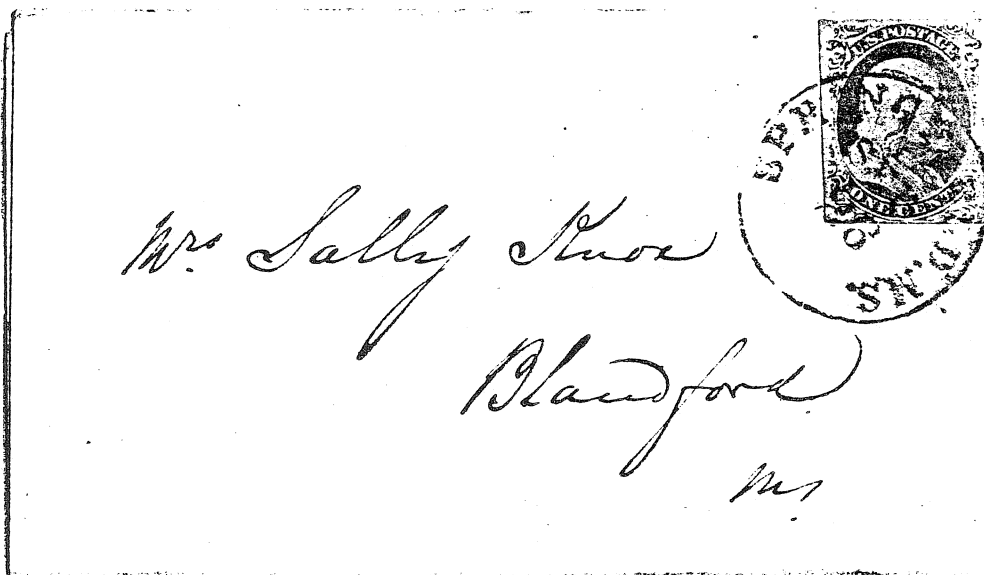 U.S. POSTAGE
ONE CENT
D. MS
Mrs. Sally Knox
Blandford
Ms